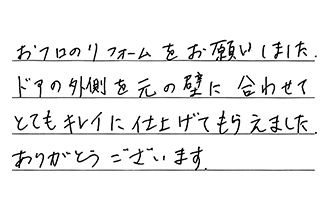 おフロのリフォームをお願いしました.
ドアの外側を元の壁に合わせて
とてもキレイに仕上げてもらえました.
ありがとうございます.